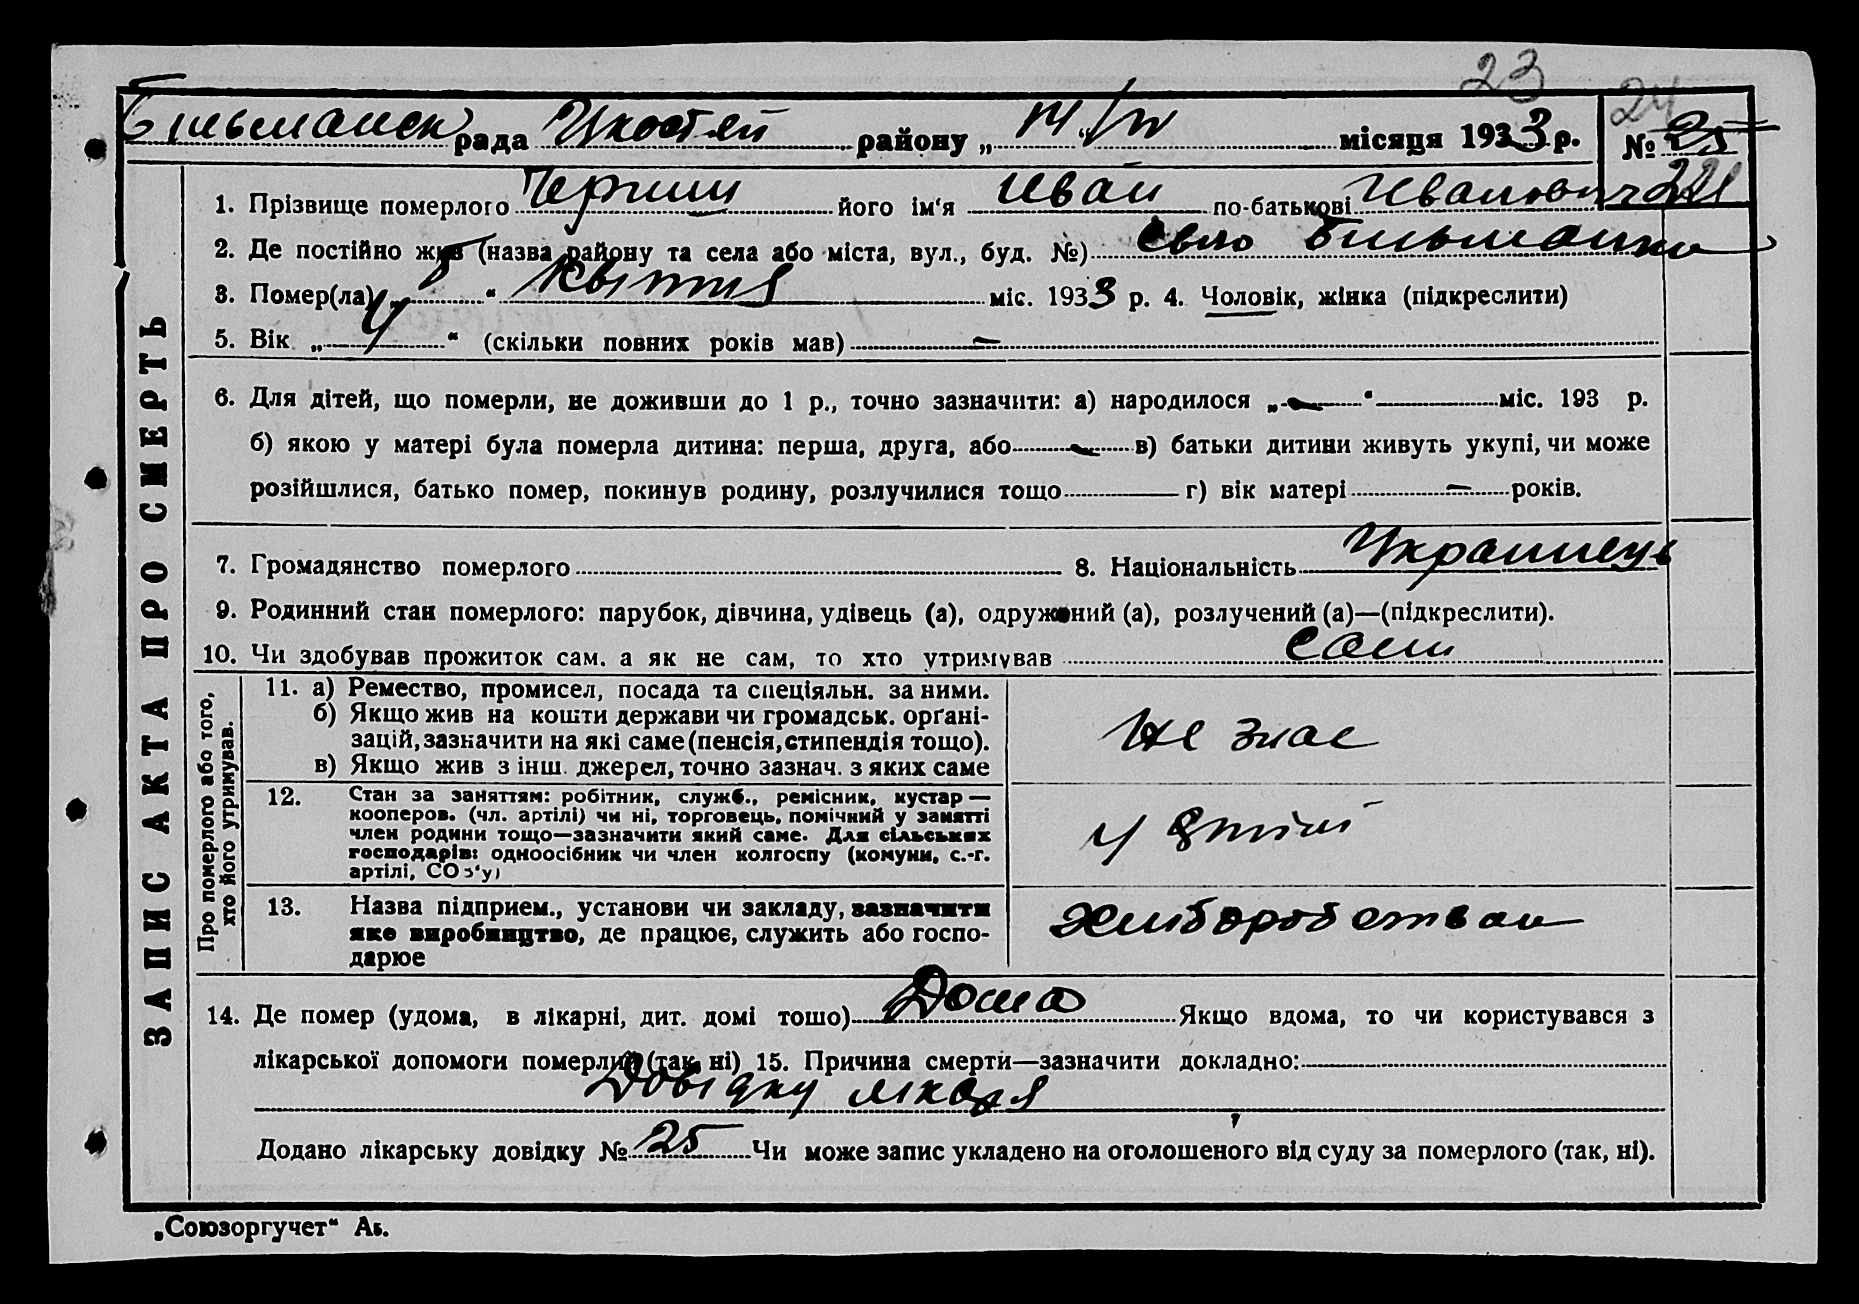 23
24
Більманск рада район­у „14/IV місяця 1933 р. № 25
221
1. Прізвище померлого його ім'я Іван по-батькові Іванович
2. Де постійно жив (назва району та села або міста, вул., буд. №) Більманка
3. Помер(ла) „ “ Квітня міс. 1933 р. 4. Чоловік, жінка (підкреслити)
5. Вік „ “ (скільки повних років мав) —
6. Для дітей, що померли, не доживши до 1 р., точно зазначити: а) народилося „—“ міс. 193 р.
б) якою у матері була померла дитина: перша, друга, або — в) батьки дитини живуть укупі, чи може
розійшлися, батько помер, покинув родину, розлучилися тощо — г) вік матері — років.
7. Громадянство померлого 8. Національність Українець
9. Родинний стан померлого: парубок, дівчина, удівець (а), одружений (а), розлучений (а)—(підкреслити).
10. Чи здобував прожиток сам, а як не сам, то хто утримував сам
ЗАПИС АКТА ПРО СМЕРТЬ
Про померлого або того,
хто його утримував.
11. а) Ремество, промисел, посада та спеціяльн. за ними.
б) Якщо жив на кошти держави чи громадськ. орґані-
зацій, зазначити на які саме (пенсія, стипендія тощо).
в) Якщо жив з інш. джерел, точно зазнач. з яких саме
Не знає
12. Стан за заняттям: робітник, служб., ремісник, кустар —
кооперов. (чл. артілі) чи ні, торговець, помічний у занятті
член родини тощо—зазначити який саме. Для сільських
господарів: одноосібник чи член колгоспу (комуни, с.-г.
артілі, СОЗ'у)
у
13. Назва підприєм., установи чи закладу, зазначити
яке виробництво, де працює, служить або госпо-
дарюе
хліборобством
14. Де помер (удома, в лікарні, дит. домі тощо) Дома Якщо вдома, то чи користувався з
лікарської допомоги померлий (так, ні) 15. Причина смерти—зазначити докладно:
Довідку лікаря
Додано лікарську довідку № 25 Чи може запис укладено на оголошеного від суду за померлого (так, ні).
„Союзоргучет“ Аь.